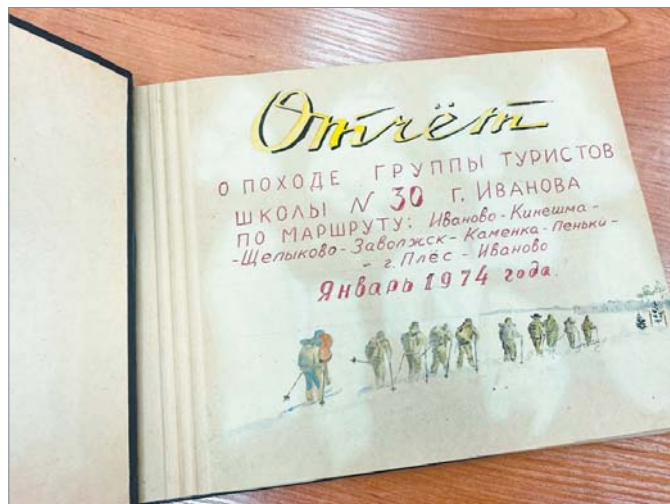 Отчёт
О ПОХОДЕ ГРУППЫ ТУРИСТОВ
ШКОЛЫ N 30 Г. ИВАНОВА
ПО МАРШРУТУ: Иваново-Кинешма-
-Щелыково-Заволжск-Каменка-Пеньки-
- г. Плёс - Иваново
Январь 1974 года.